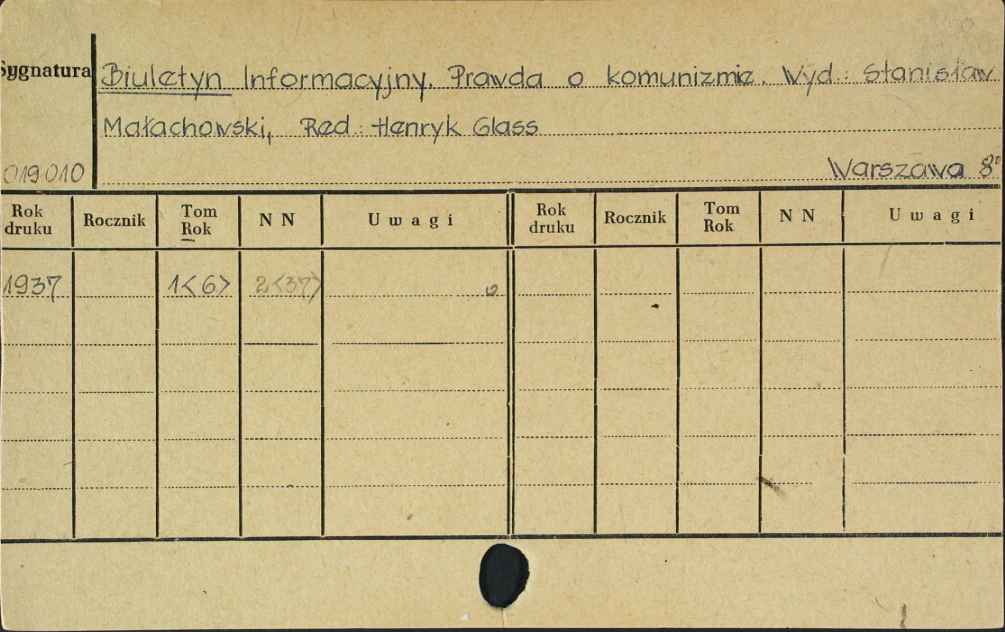 Sygnatura Biuletyn Informacyjny. Prawda o komunizmie. Wyd: Stanisław
Małachowski, Red: Henryk Glass
019010 Warszawa 8°
Rok druku Rocznik Tom Rok N N Uwagi Rok druku Rocznik Tom Rok N N Uwagi
1937 1<6> 2<37>